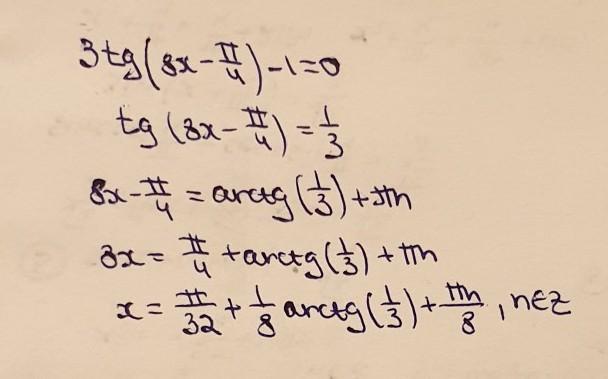 3tg(8x-π/4)-1=0
tg(8x-π/4)=1/3
8x-π/4=arctg(1/3)+πn
8x=π/4+arctg(1/3)+πn
x=π/32+1/8 arctg(1/3)+πn/8, n∈z